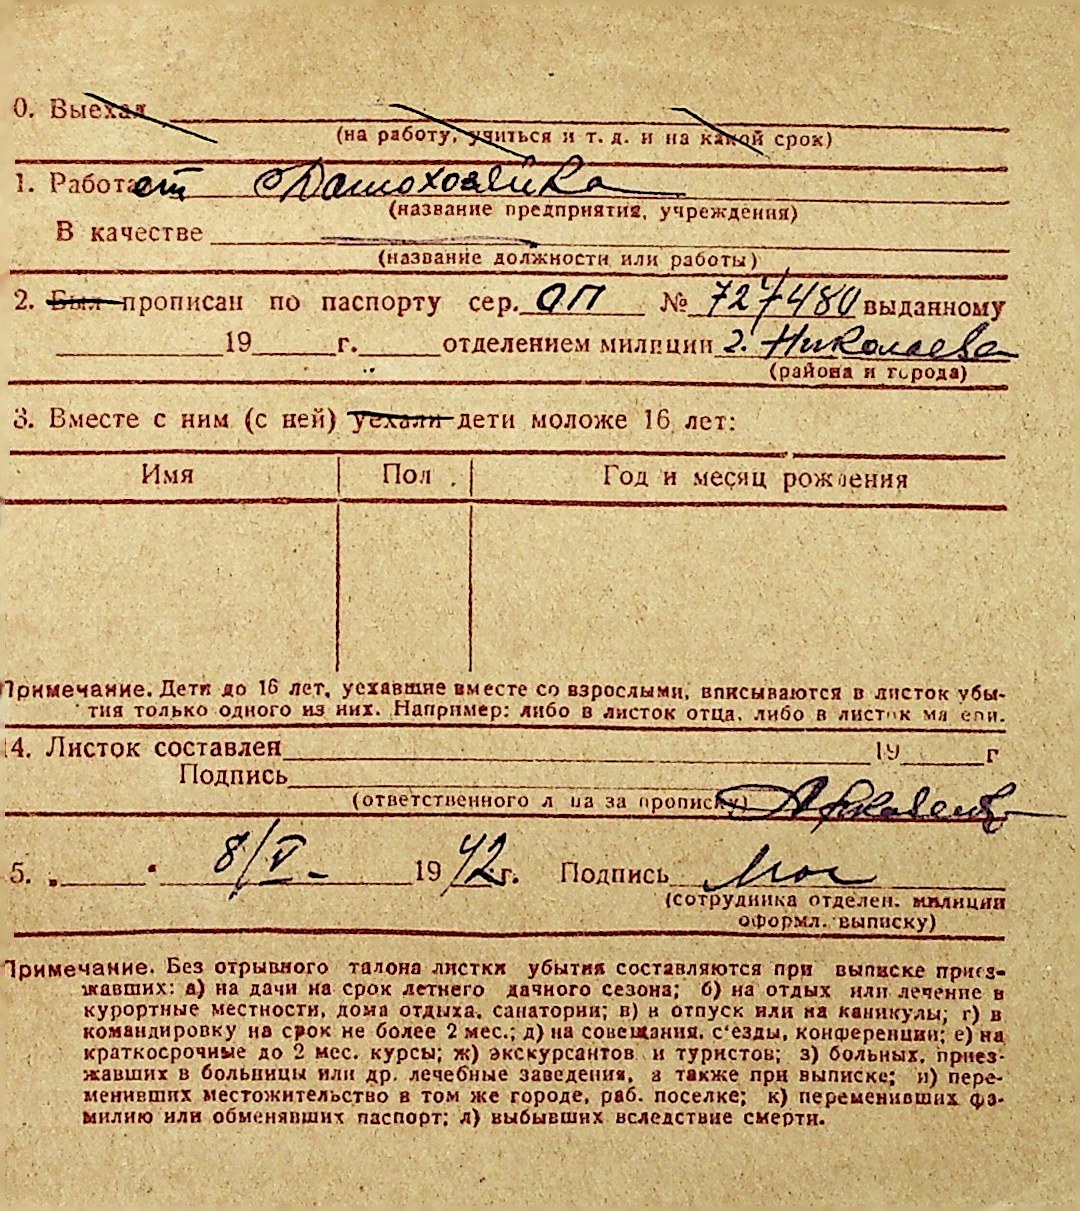 0. Выехал
(на работу, учиться и т. д. и на какой срок)
1. Работает Домохозяйка
(название предприятия, учреждения)
В качестве
(название должности или работы)
2. Был прописан по паспорту сер. ОП № 727480 выданному
19 г. отделением милиции г. Николаева
(района и города)
3. Вместе с ним (с ней) уехали дети моложе 16 лет:
Имя Пол Год и месяц рождения
Примечание. Дети до 16 лет, уехавшие вместе со взрослыми, вписываются в листок убы-
тия только одного из них. Например: либо в листок отца, либо в листок ма ери.
14. Листок составлен 19 г
Подпись
(ответственного л ца за прописку)
5. „ “ 8/V- 1942 г. Подпись
(сотрудника отделен. милиции
оформл. выписку)
Примечание. Без отрывного талона листки убытия составляются при выписке приез-
жавших: а) на дачи на срок летнего дачного сезона; б) на отдых или лечение в
курортные местности, дома отдыха, санатории; в) в отпуск или на каникулы; г) в
командировку на срок не более 2 мес.; д) на совещания, с‘езды, конференции; е) на
краткосрочные до 2 мес. курсы; ж) экскурсантов и туристов; з) больных, приез-
жавших в больницы или др. лечебные заведения, а также при выписке; и) пере-
менивших местожительство в том же городе, раб. поселке; к) переменивших фа-
милию или обменявших паспорт; л) выбывших вследствие смерти.